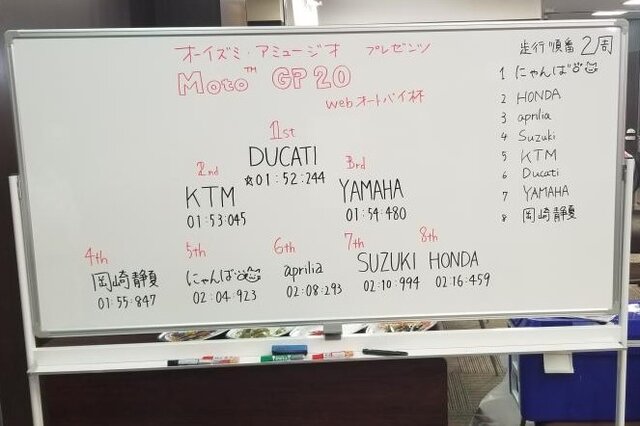 オーイズミ・アミュージオ プレゼンツ
Moto™ GP 20
webオートバイ杯
1st
DUCATI
☆01:52:244
2nd
KTM
01:53:045
3rd
YAMAHA
01:54:480
4th
岡崎静夏
01:55:847
5th
にゃんば
02:04:923
6th
aprilia
02:08:293
7th
SUZUKI
02:10:994
8th
HONDA
02:16:459
走行順番 2周
1 にゃんば
2 HONDA
3 aprilia
4 Suzuki
5 KTM
6 Ducati
7 YAMAHA
8 岡崎静夏